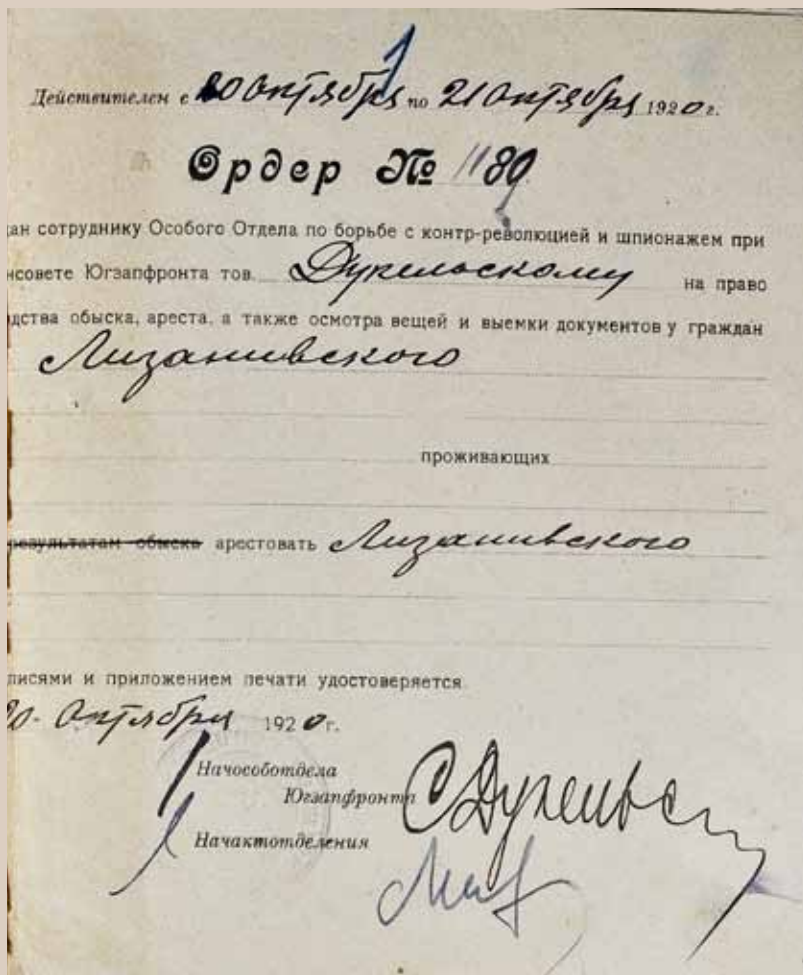 Действителен с 20 октября по 21 октября 1920 г.
Ордер № 1189
дан сотруднику Особого Отдела по борьбе с контр-революцией и шпионажем при
нсовете Югзапфронта тов. Дукельскому на право
дства обыска, ареста, а также осмотра вещей и выемки документов у граждан
Лизанивского
проживающих
результатам обыска арестовать Лизанивского
писями и приложением печати удостоверяется.
20 октября 1920 г.
Начособотдела
Югзапфронта С Дукельс
Начактотделения